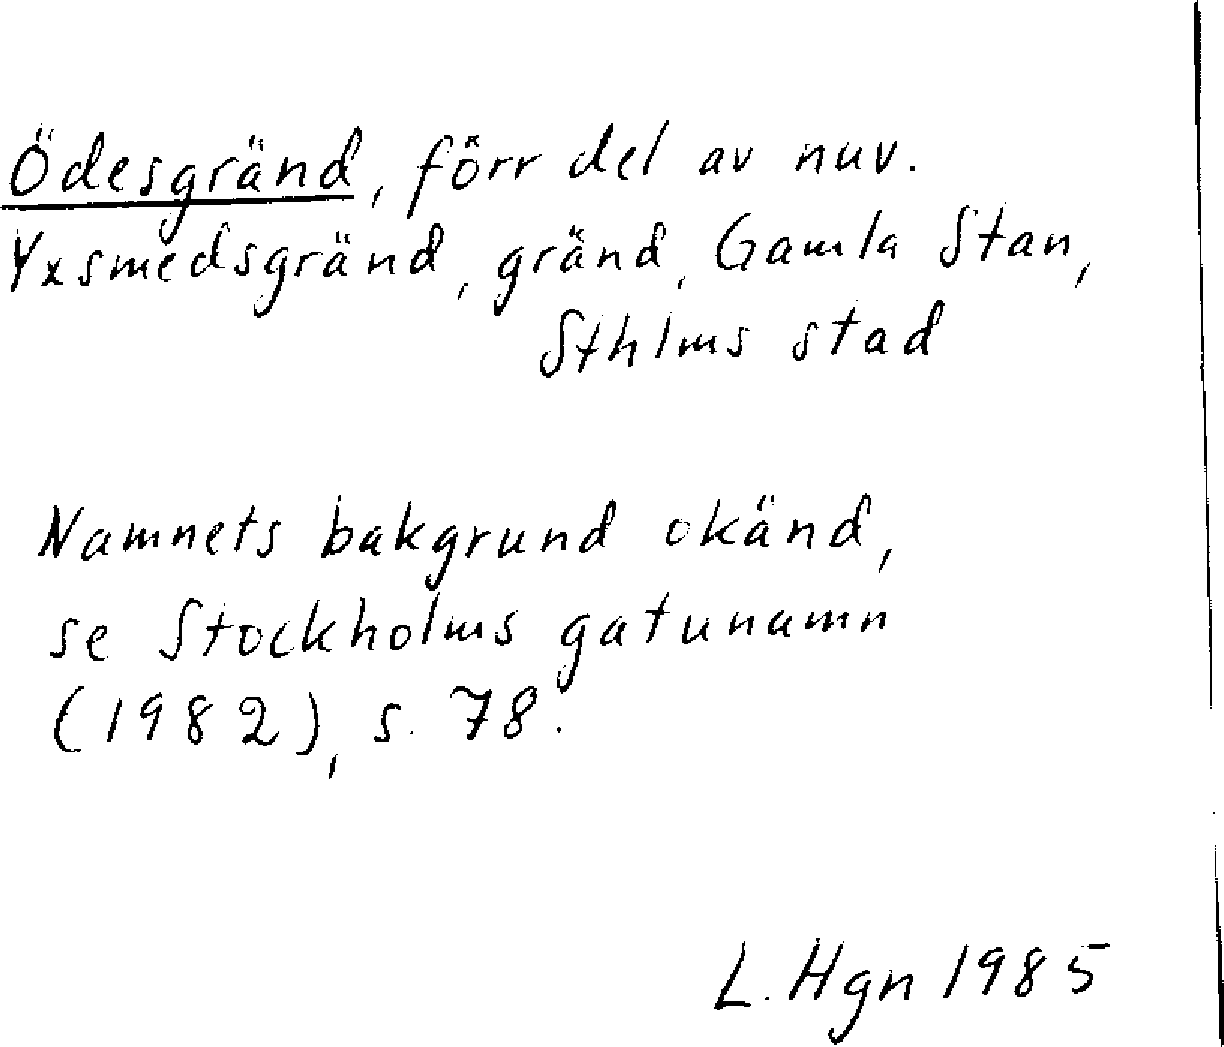 Ödesgränd, förr del av nuv.
Yxsmedsgränd, gränd, Gamla Stan,
Sthlms stad
Namnets bakgrund okänd,
se Stockholms gatunamn
(1982), s. 78.
L. Hgn 1985